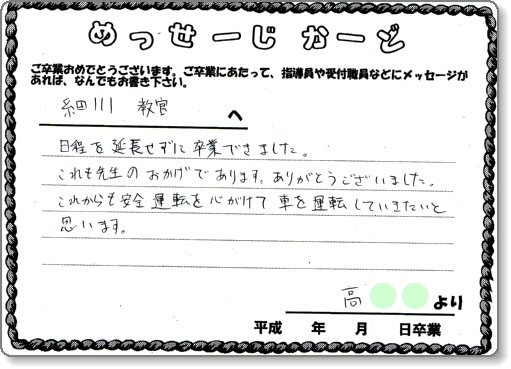 めっせーじかーど
ご卒業おめでとうございます。ご卒業にあたって、指導員や受付職員などにメッセージが
あれば、なんでもお書き下さい。
細川 教官 へ
日程を延長せずに卒業できました。
これも先生のおかげであります。ありがとうございました。
これからも安全運転を心がけて車を運転していきたいと
思います。
高 より
平成 年 月 日卒業